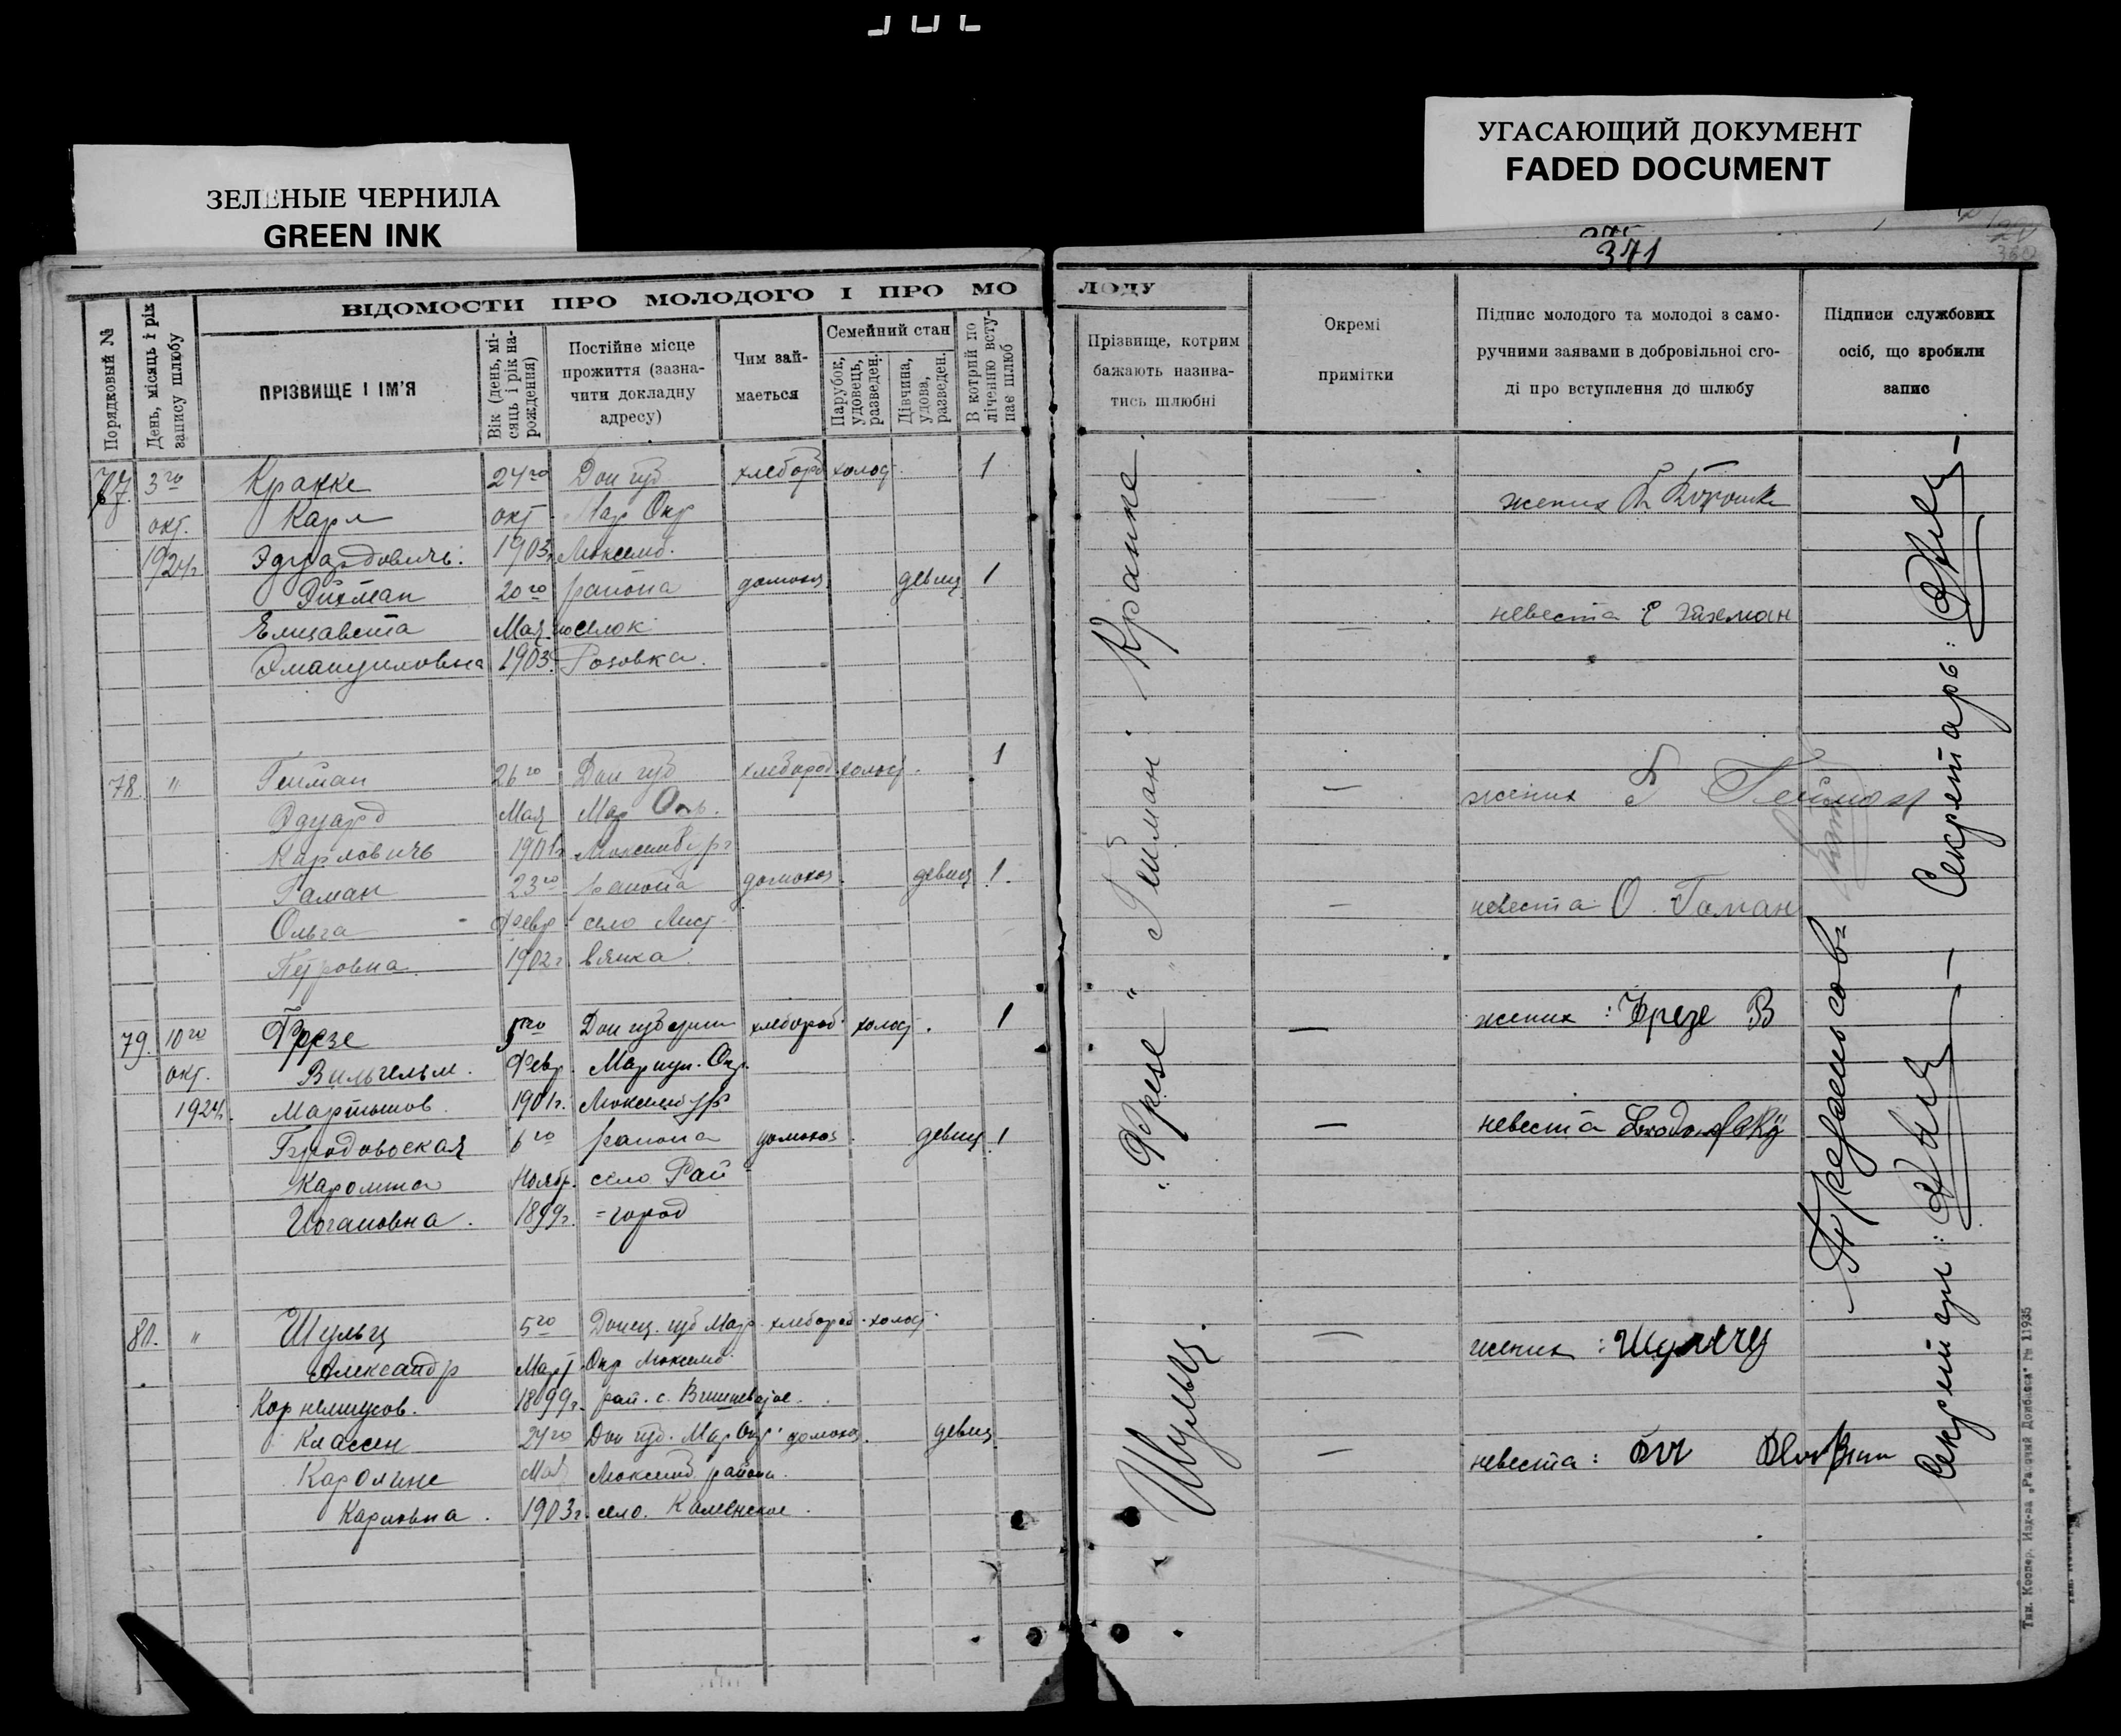 ЗЕЛЕНЫЕ ЧЕРНИЛА
GREEN INK
УГАСАЮЩИЙ ДОКУМЕНТ
FADED DOCUMENT
371
ВІДОМОСТИ ПРО МОЛОДОГО І ПРО МО
ЛОДУ
Порядковый №
День, місяць і рік запису шлюбу
ПРІЗВИЩЕ І ІМ'Я
Вік (день, мі-
сяць і рік на-
рождения)
Постійне місце
прожиття (зазна-
чити докладну
адресу)
Чим зай-
мається
Семейний стан
Парубок,
удовець,
разведен.
Дівчина,
удова,
разведен.
В котрий по
ліченню всту-
пає шлюб
Прізвище, котрим
бажають назива-
тись шлюбні
Окремі
примітки
Підпис молодого та молодоі з само-
ручними заявами в добровільноі сго-
ді про вступлення до шлюбу
Підписи службових
осіб, що зробили
запис
77 3го Кранке 24го Дон губ хлебороб холост 1
окт. Карл окт Мар Окр
1924г Эдуардовичъ. 1903г Люксемб.
Эйхман 20го района домохоз. девиц 1
Елизавета Мая поселок
Эмануиловна 1903г. Розовка.
Кранке
жених
невеста Е Эйхман
78. " Гейман 26го Дон губ хлебороб холост. 1
Эдуард Мая Мар Окр.
Карлович 1901г Люксембург
Гаман 23го района домохоз. девиц 1.
Ольга Февр село Лист
Петровна. 1902г. вянка.
" Гейман
жених Гейман
невеста О. Гаман
79. 10го Фрезе 5го Дон губернии хлебороб холост. 1
окт. Вильгельм. Февр. Мариуп. Окр.
1924г. Мартынов 1901г. Люксембург
Бродовская 6го района домохоз. девиц 1
Каролина Ноябр. село Рай
Иогановна. 1899г. =город
" Фрезе "
жених: Фрезе В
невеста
80. " Шульц 5го Донец. губ Мар. хлебороб холост.
Александр Март Окр Люксемб.
Корнелиусов. 1899г. рай. с.
Классен 24го Дон губ. Мар Окр. домохоз. девиц
Каролине Мая Люксемб. района.
Карловна. 1903г. село. Каменское.
Шульц.
жених:
невеста:
Секретарь:
Секретарь:
Тип. Коопер. Изд-ва „Рабочий Донбасса“ № 11935